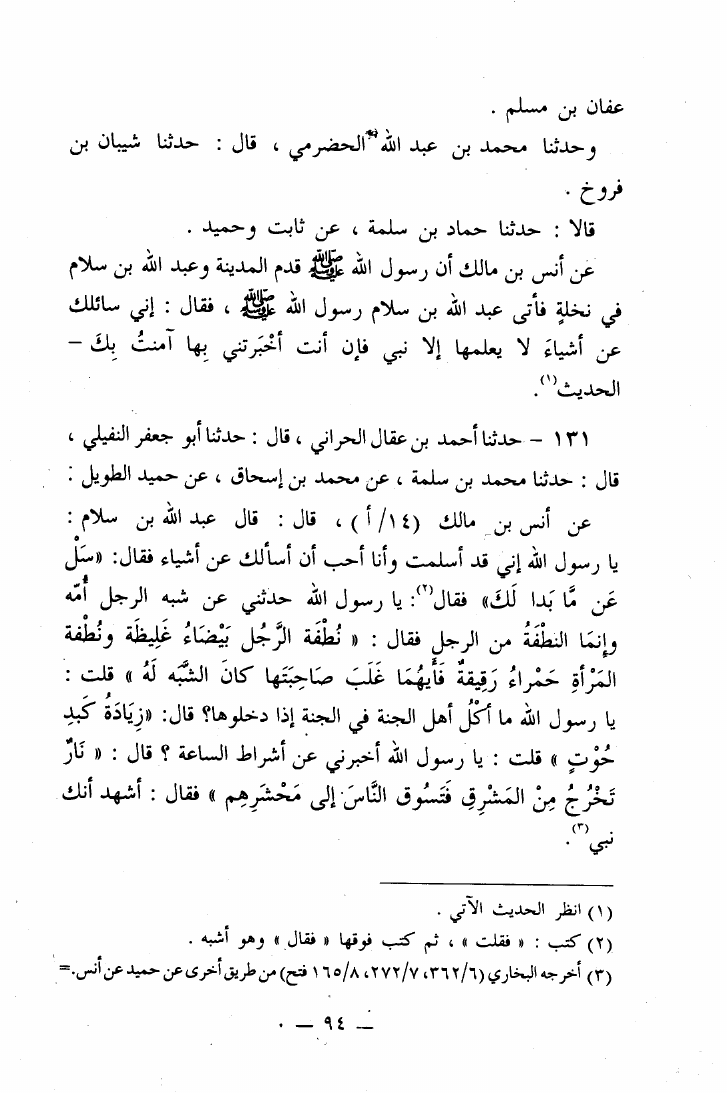 عفان بن مسلم .
وحدثنا محمد بن عبد الله الحضرمي ، قال : حدثنا شيبان بن
فروخ .
قالا : حدثنا حماد بن سلمة ، عن ثابت وحميد .
عن أنس بن مالك أن رسول الله ﷺ قدم المدينة وعبد الله بن سلام
في نخلةٍ فأتى عبد الله بن سلام رسول الله ﷺ ، فقال : إني سائلك
عن أشياءَ لا يعلمها إلا نبي فإن أنت أخْبَرتني بِها آمنتُ بِكَ –
الحديث(١).
١٣١ – حدثنا أحمد بن عقال الحراني ، قال : حدثنا أبو جعفر النفيلي ،
قال : حدثنا محمد بن سلمة ، عن محمد بن إسحاق ، عن حميد الطويل :
عن أنس بن مالك (١٤/أ) ، قال : قال عبد الله بن سلام :
يا رسول الله إني قد أسلمت وأنا أحب أن أسألك عن أشياء فقال: «سَلْ
عَن مَّا بَدا لَكَ» فقال(٢): يا رسول الله حدثني عن شبه الرجل أُمّه
وإنمَا النطْفَةُ من الرجل فقال : « نُطْفَة الرَّجُل بَيْضَاءُ غَلِيظَة ونُطْفة
المَرْأةِ حَمْراءُ رَقِيقةٌ فَأَيهُمَا غَلَبَ صَاحِبَتَها كانَ الشَّبَه لَهُ » قلت :
يا رسول الله ما أكْلُ أهل الجنة في الجنة إذا دخلوها؟ قال: «زِيَادَةُ كَبِدِ
حُوْتٍ » قلت : يا رسول الله أخبرني عن أشراط الساعة ؟ قال : « نَارٌ
تَخْرُجُ مِنْ المَشْرِقِ فَتَسُوق النَّاسَ إلى مَحْشَرِهِم » فقال : أشهد أنك
نبي(٣).
(١) انظر الحديث الآتي .
(٢) كتب : « فقلت » ، ثم كتب فوقها « فقال » وهو أشبه .
(٣) أخرجه البخاري (٣٦٢/٦، ٢٧٢/٧، ١٦٥/٨ فتح) من طريق أخرى عن حميد عن أنس.=
– ٩٤ –